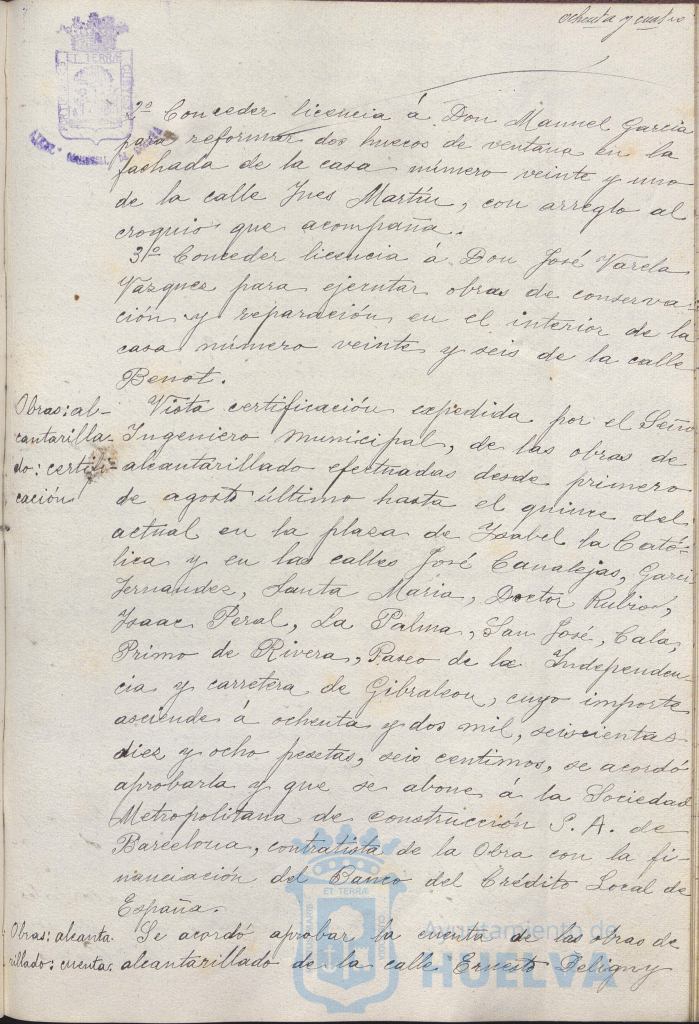 ochenta y cuatro
2º Conceder licencia á Don Manuel Garcia
para reformar dos huecos de ventana en la
fachada de la casa número veinte y uno
de la calle Ines Martín, con arreglo al
croquis que acompaña.
3º Conceder licencia á Don José Varela
Vazquez para ejecutar obras de conserva-
ción y reparación, en el interior de la
casa número veinte y seis de la calle
Benot.
Obras: al-
cantarilla-
do: certifi-
cación
Vista certificación expedida por el Seño
Ingeniero municipal, de las obras de
alcantarillado efectuadas desde primero
de agosto último hasta el quince del
actual en la plaza de Isabel la Cató-
lica y en las calles José Canalejas, Garci
Fernandez, Santa Maria, Doctor Rubio,
Isaac Peral, La Palma, San José, Cala,
Primo de Rivera, Paseo de la Independen-
cia y carretera de Gibraleon, cuyo importe
asciende á ochenta y dos mil, seiscientas
diez y ocho pesetas, seis centimos, se acordó
aprobarla y que se abone á la Sociedad
Metropolitana de construcción S. A. de
Barcelona, contratista de la Obra con la fi-
nanciación del Banco del Crédito Local de
España.
Obras: alcanta-
rillado: cuenta.
Se acordó aprobar la cuenta de las obras de
alcantarillado de la calle Ernesto Deligny
ET TERRÆ
Ayuntamiento de
HUELVA